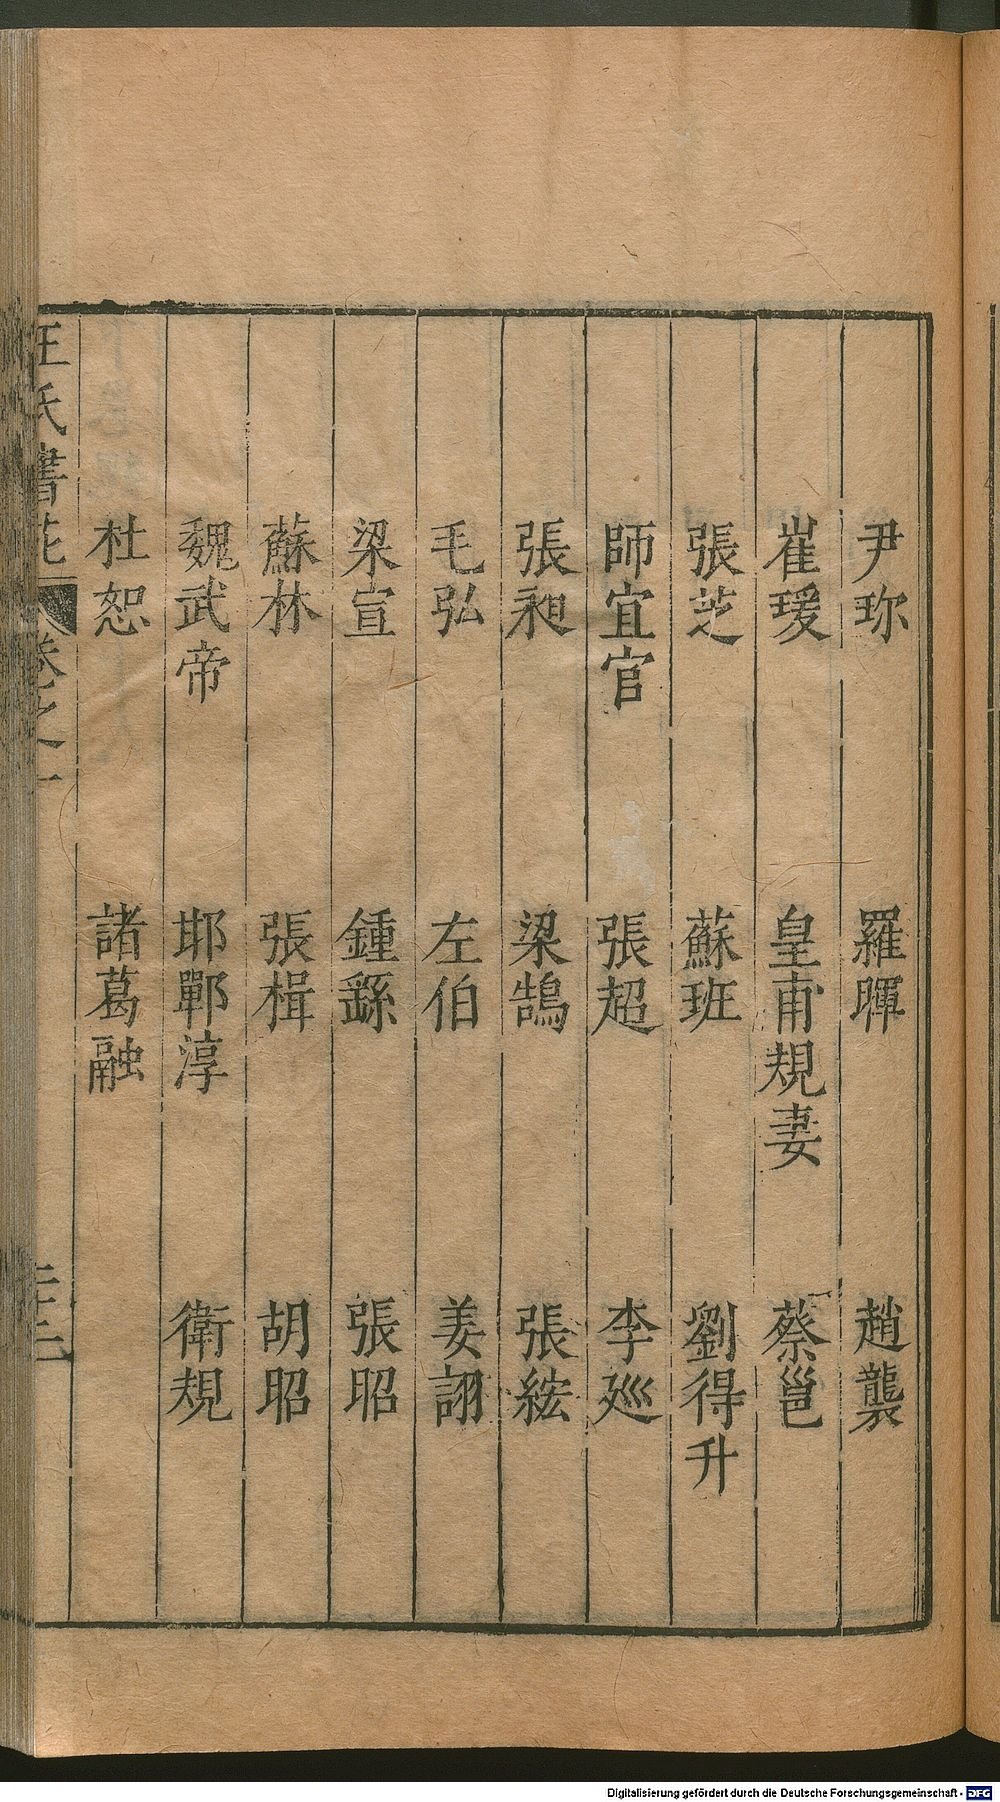 尹珎 羅暉 趙襲
崔瑗 皇甫規妻 蔡邕
張芝 蘇班 劉得升
師宜官 張超 李廵
張昶 梁鵠 張紘
毛弘 左伯 姜詡
梁宣 鍾繇 張昭
蘇林 張楫 胡昭
魏武帝 邯鄲淳 衛規
杜恕 諸葛融
王氏書苑 卷之一
Digitalisierung gefördert durch die Deutsche Forschungsgemeinschaft - DFG